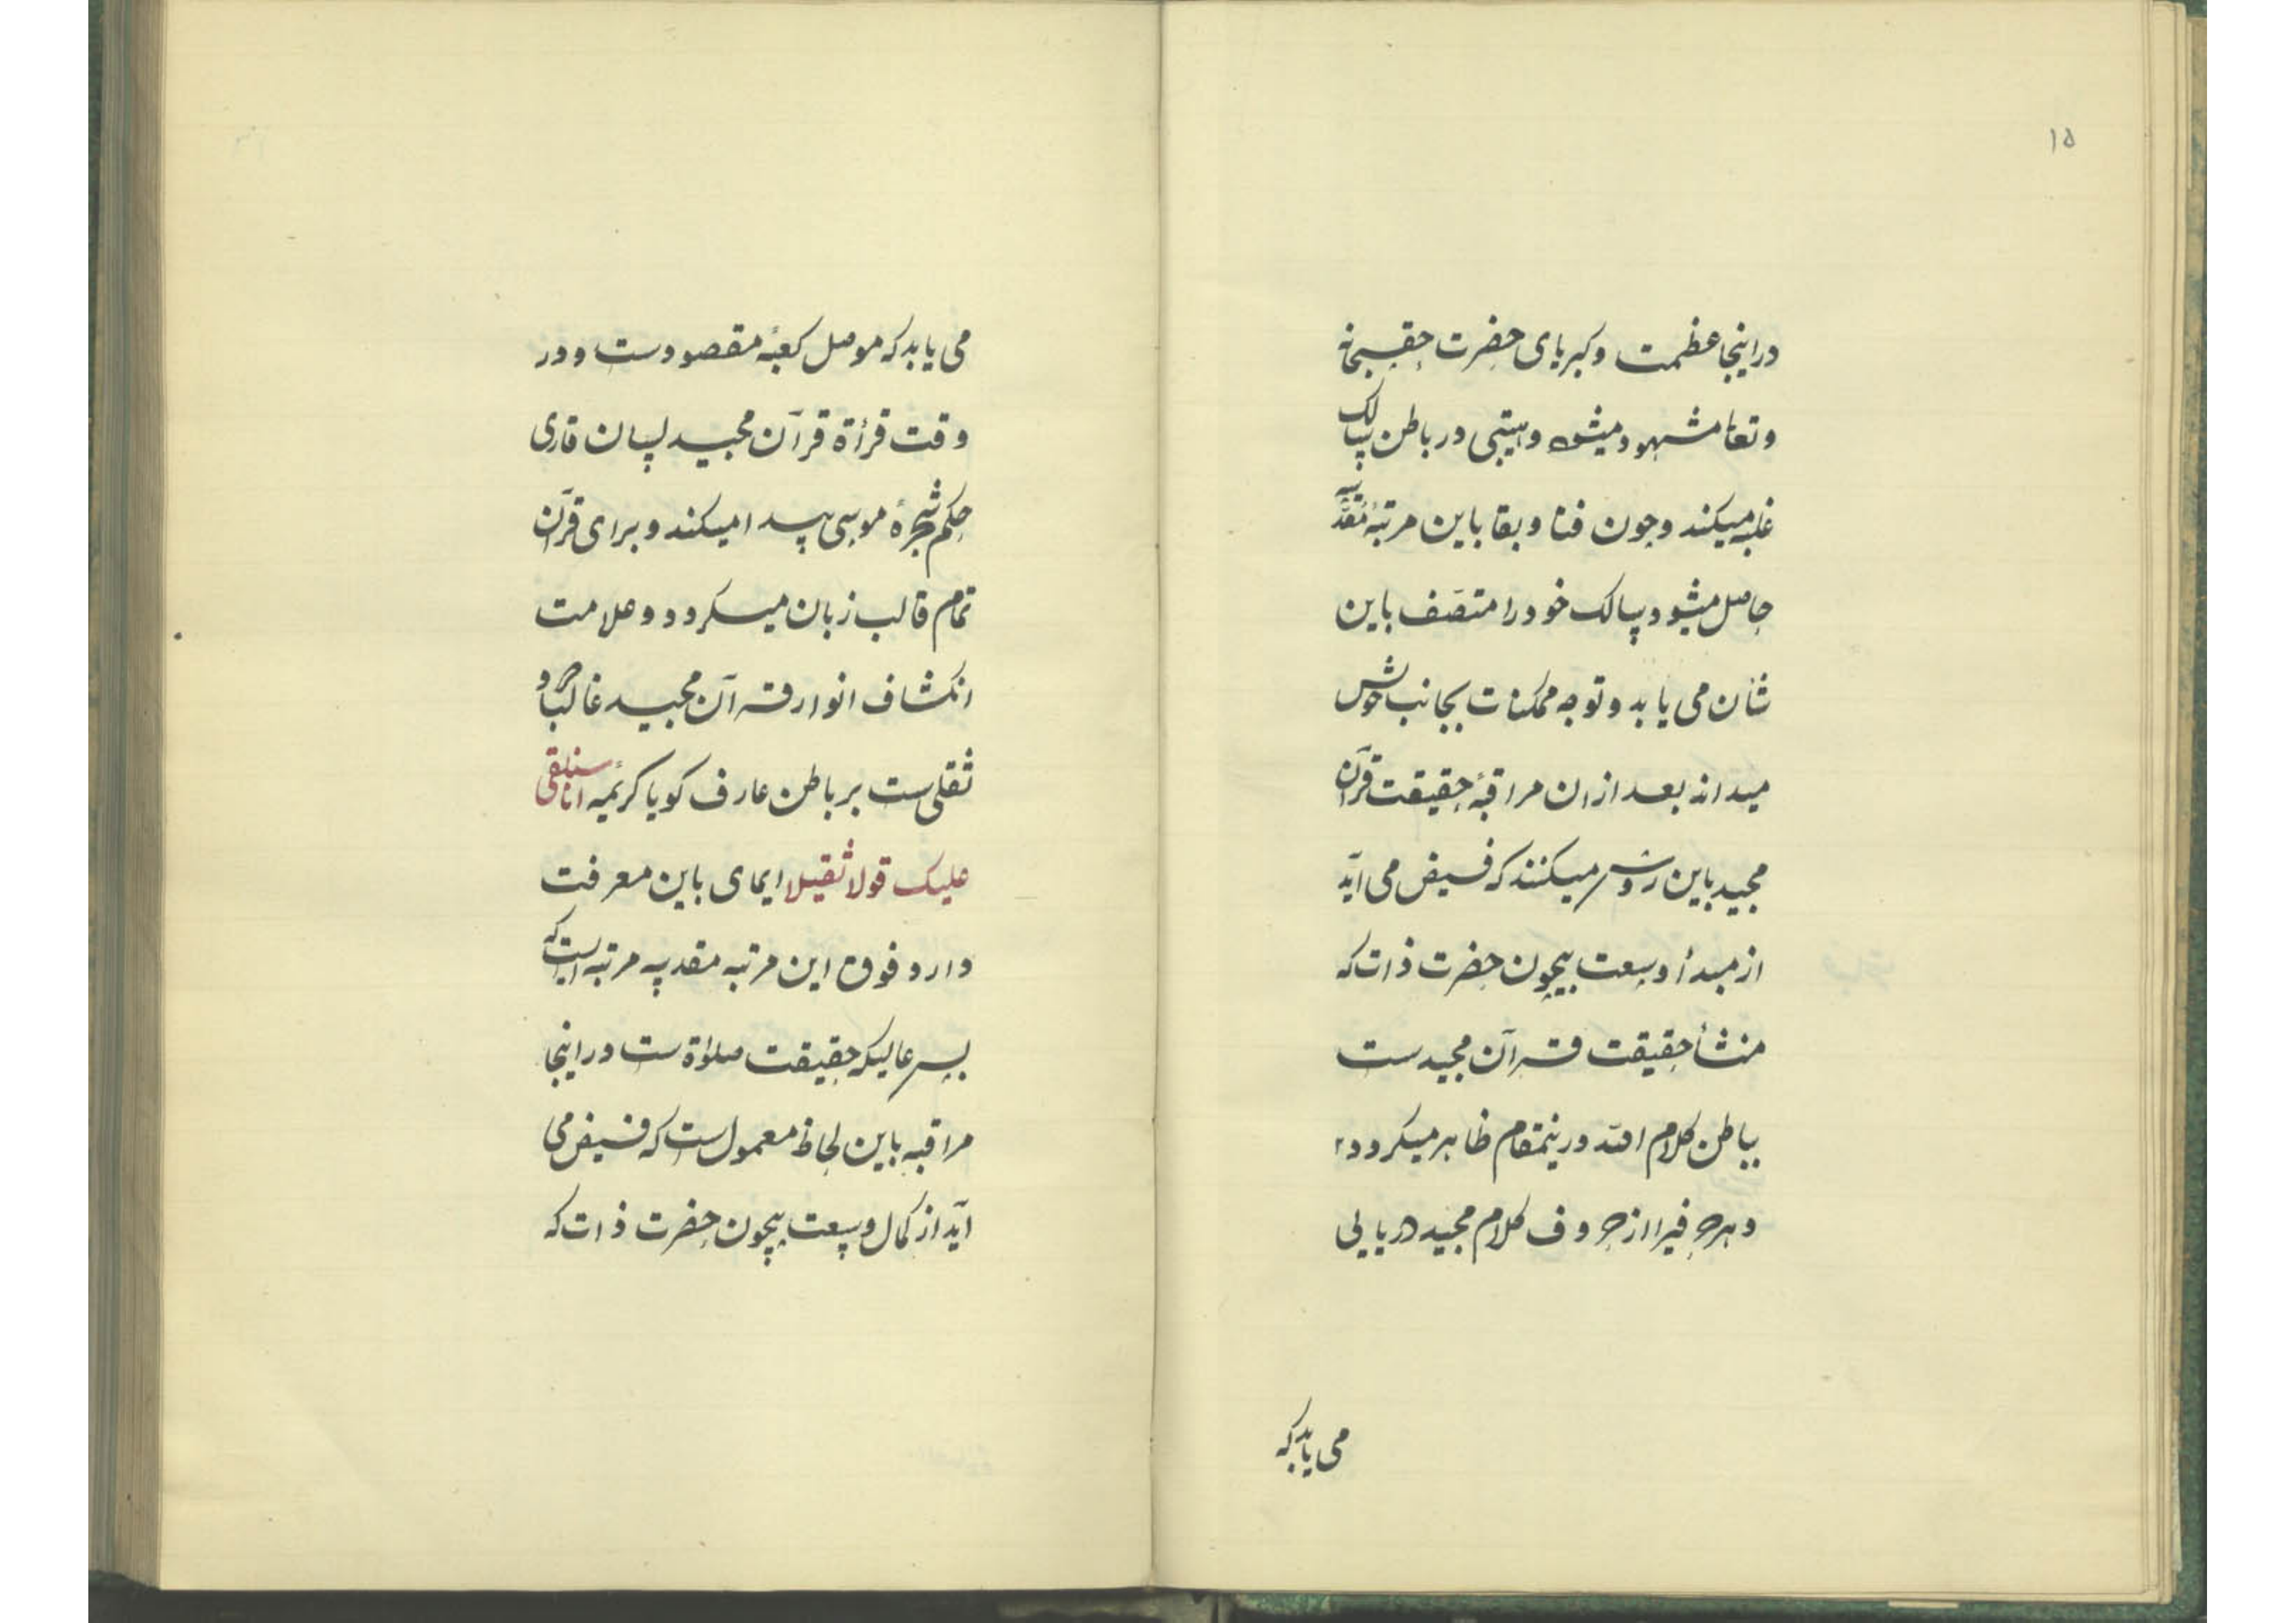 ۱۵
دراینجا عظمت و کبریای حضرت حقسبحانه
و تعا مشهود میشود و هیبتی در باطن سالک
غلبه میکند و چون فنا و بقا باین مرتبهٔ مقدّسه
حاصل میشود سالک خود را متصف باین
شان می یابد و توجه ممکنات بجانب خویش
میداند بعد ازان مراقبهٔ حقیقت قرآن
مجید باین روش میکنند که فیض می آید
از مبدأ وسعت بیچون حضرت ذات که
منشأ حقیقت قرآن مجید ست
بباطن کلام الله درینمقام ظاهر میکردد
و هر حرفیرا از حروف کلام مجید دریایی
می یابد که
می یابد که موصل کعبهٔ مقصودست و در
وقت قرأة قرآن مجید لسان قاری
حکم شجرهٔ موسی پیدا میکند و برای قرآن
تمام قالب زبان میکردد و علامت
انکشاف انوار قرآن مجید غالبا ورود
ثقلی ست بر باطن عارف کویا کریمهٔ انا سنلقی
علیک قولا ثقیلا ایمای باین معرفت
دارد فوق این مرتبه مقدسه مرتبه ایست که
بس عالیکه حقیقت صلوٰة ست دراینجا
مراقبه باین لحاظ معمول است که فیض می
آید از کمال وسعت بیچون حضرت ذات که